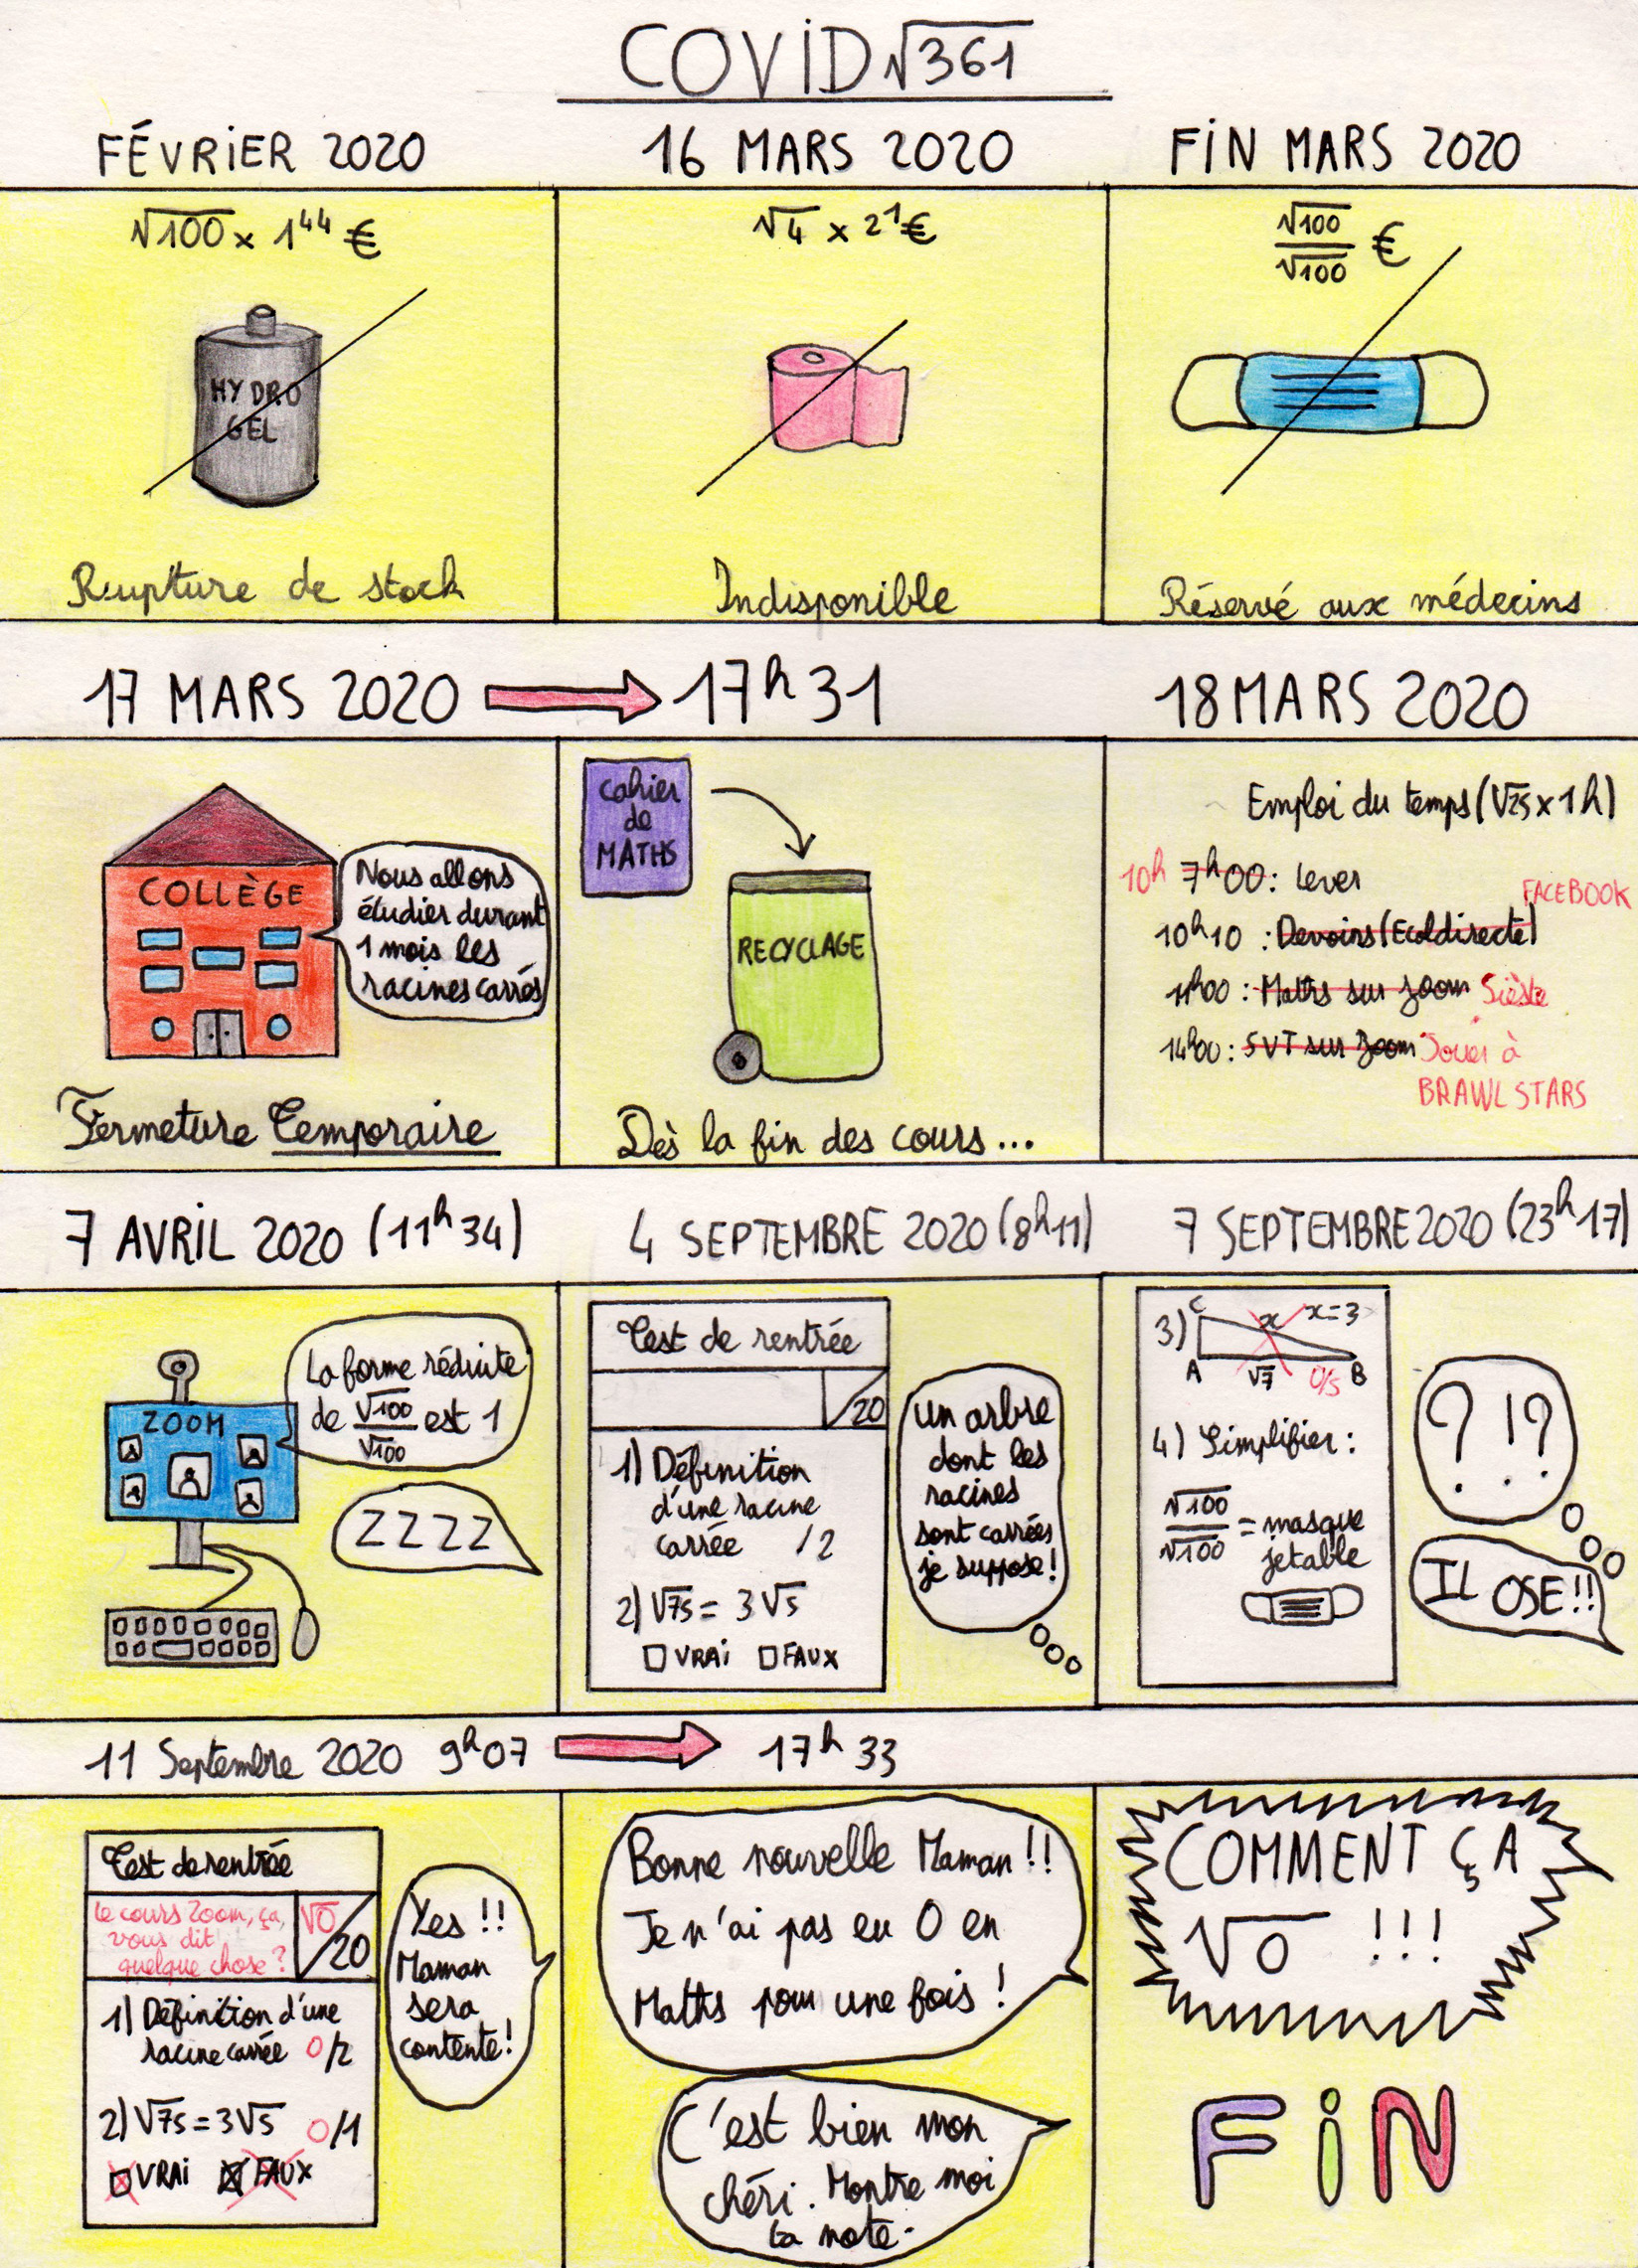 COVID √361
FÉVRIER 2020
16 MARS 2020
FIN MARS 2020
√100 x 1⁴⁴ €
HYDRO
GEL
Rupture de stock
√4 x 2¹ €
Indisponible
√100
√100
€
Réservé aux médecins
17 MARS 2020
17h31
18 MARS 2020
COLLÈGE
Nous allons
étudier durant
1 mois les
racines carrés
Fermeture Temporaire
Cahier
de
MATHS
RECYCLAGE
Dès la fin des cours...
Emploi du temps (√25 x 1h)
10h 7h00: Lever
FACEBOOK
10h10 : Devoirs (Ecoldirecte)
11h00 : Maths sur zoom Sièste
14h00 : SVT sur Zoom Jouer à
BRAWL STARS
7 AVRIL 2020 (11h34)
4 SEPTEMBRE 2020 (8h11)
7 SEPTEMBRE 2020 (23h17)
ZOOM
La forme réduite
de √100/√100 est 1
ZZZZ
Test de rentrée
/20
1) Définition
d'une racine
carrée /2
2) √75 = 3√5
VRAI FAUX
Un arbre
dont les
racines
sont carrées
je suppose!
3) C x x=3
A √7 0/5 B
4) Simplifier :
√100/√100 = masque
jetable
? !?
IL OSE!!
11 Septembre 2020 9h07
17h33
Test de rentrée
Le cours Zoom, ça,
vous dit
quelque chose ?
√0/20
1) Définition d'une
racine carrée 0/2
2) √75 = 3√5 0/1
VRAI FAUX
Yes !!
Maman
sera
contente!
Bonne nouvelle Maman !!
Je n'ai pas eu 0 en
Maths pour une fois !
C'est bien mon
chéri. Montre moi
ta note.
COMMENT ÇA
√0 !!!
FIN